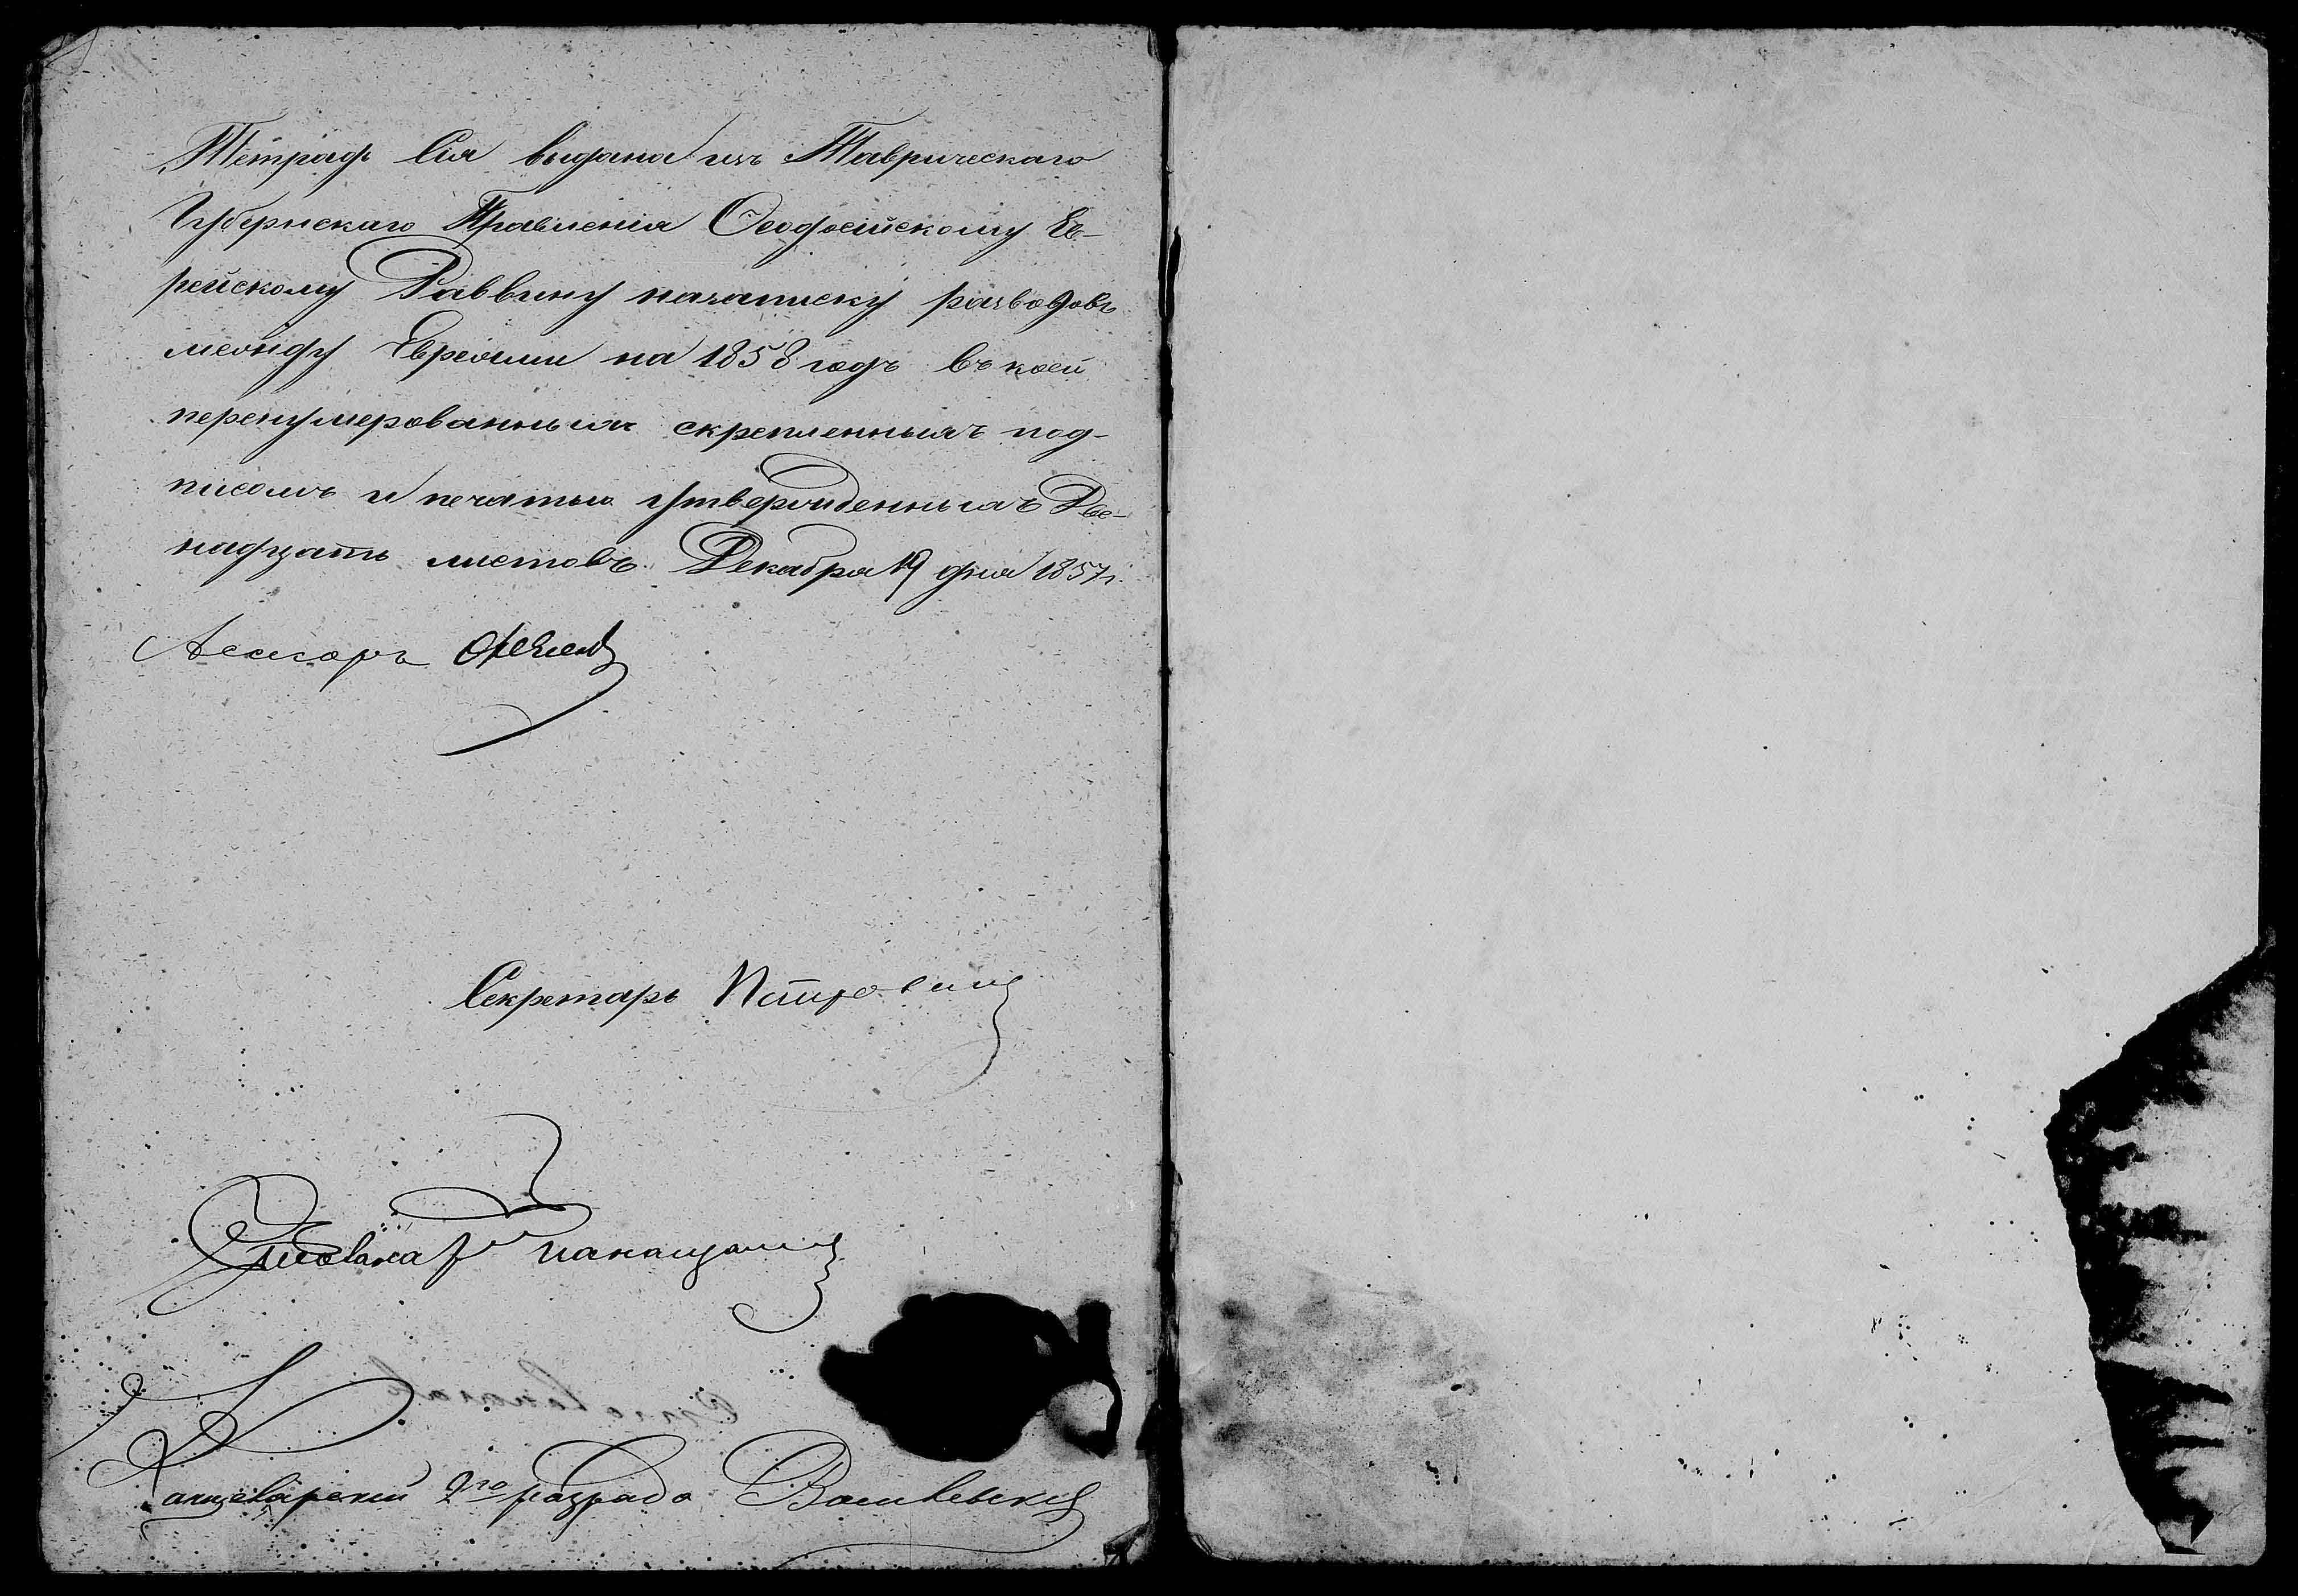 Тетрадь Сія выдана изъ Таврическаго
Губернскаго Правленія Ѳеодосійскому Ев-
рейскому Раввину назаписку разводовъ
между Евреями на 1858 годъ въ коей
перенумерованныхъ скрепленныхъ под-
писомъ и печатью утвержденныхъ Две-
надцать листовъ. Декабря 19 дня 1857 г.
Асессоръ
Секретарь
Канцелярскій 2го разряда